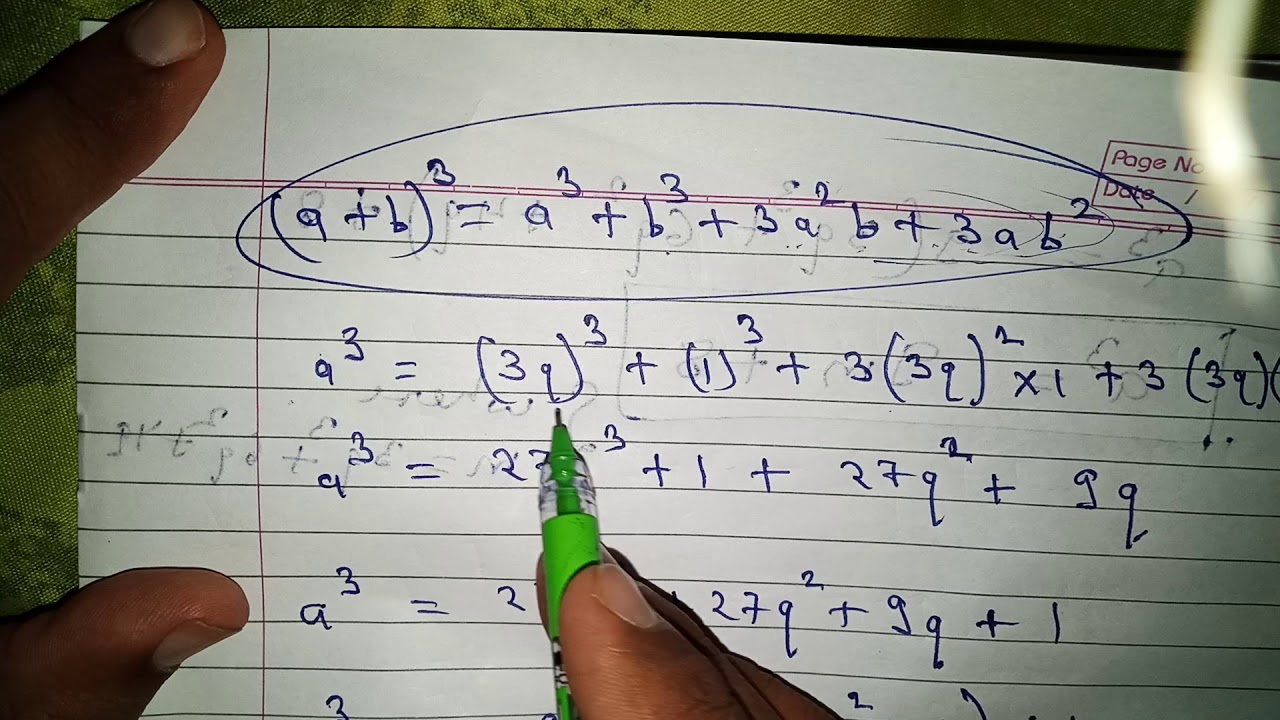 Page No
Date /
(a + b)³ = a³ + b³ + 3a²b + 3ab²
a³ = (3q)³ + (1)³ + 3(3q)² × 1 + 3(3q)(
a³ = 27 ³ + 1 + 27q² + 9q
a³ = 2 27q² + 9q + 1
3 2 )